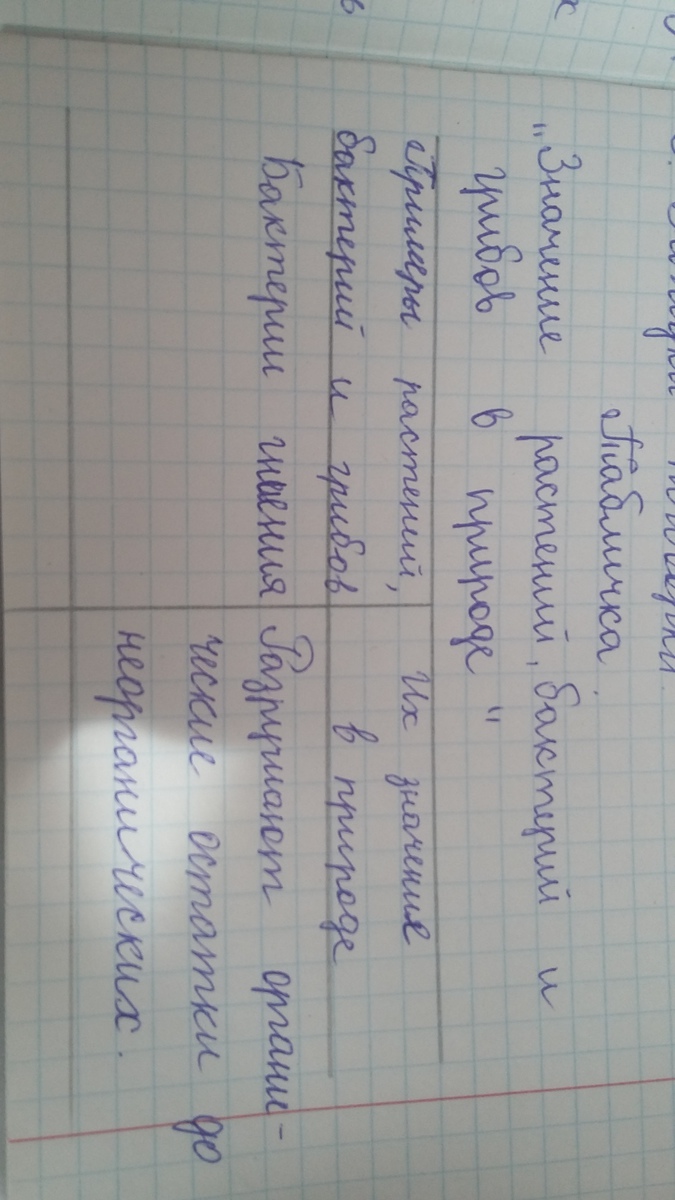 Табличка
"Значение растений, бактерий и
грибов в природе"
Примеры растений,
бактерий и грибов
Их значения
в природе
Бактерии гниения
Разрушают органи-
ческие остатки до
неорганических.